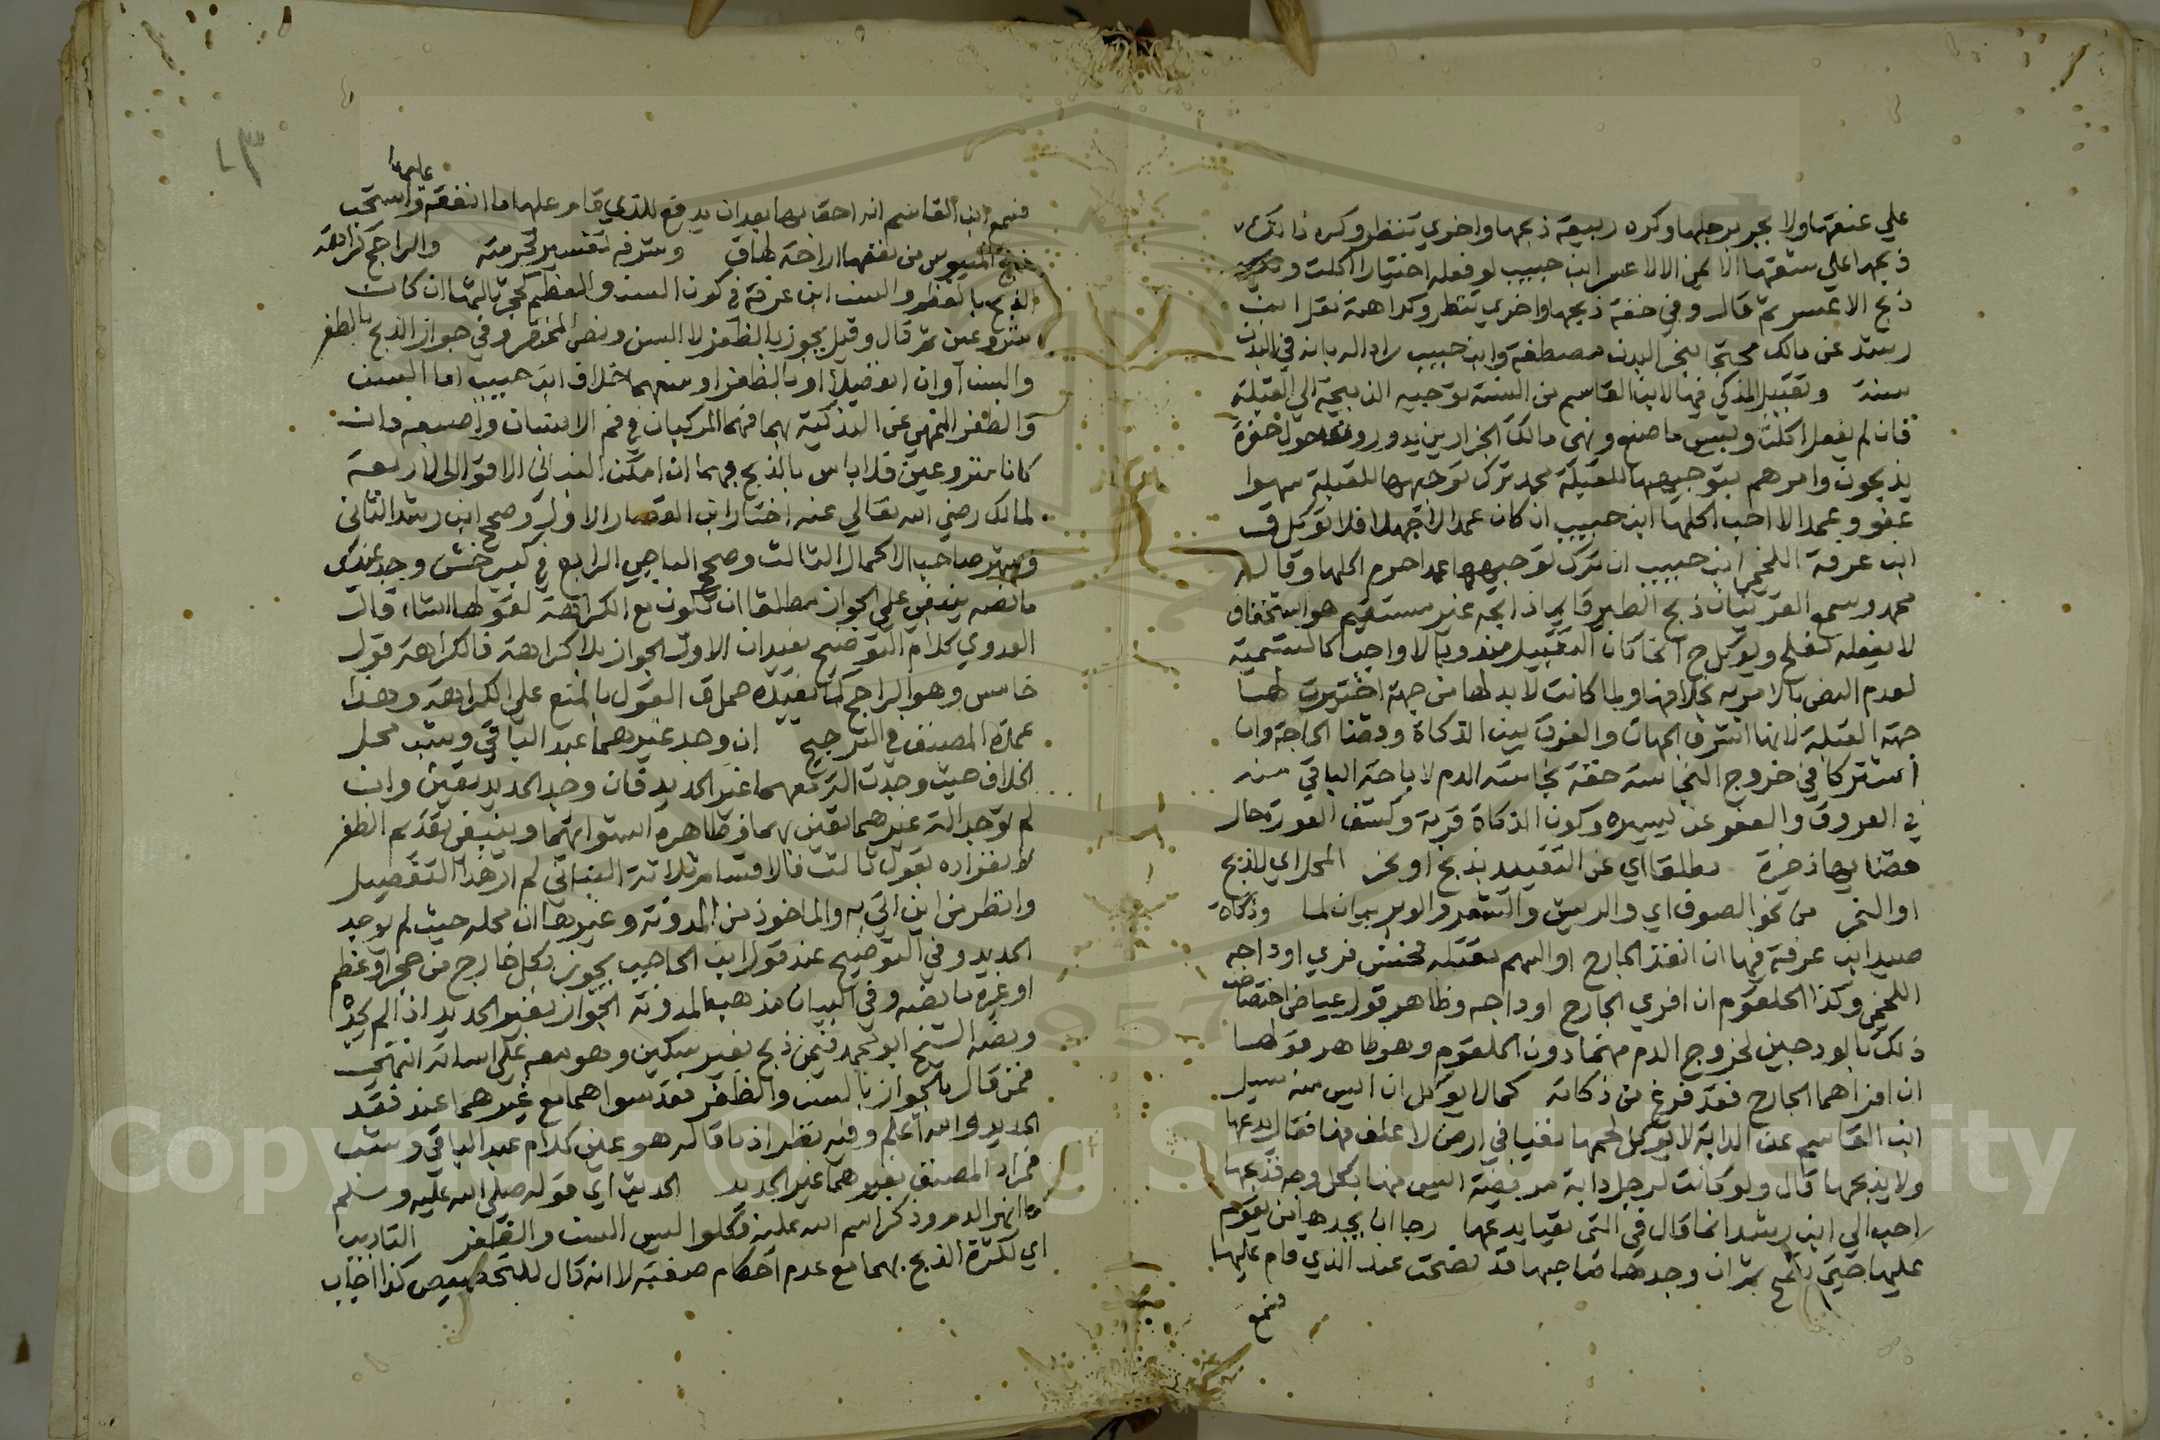 علي عنقها ولا يجر برجلها وكره ربيعة ذبحها واخري تنظر وكره مالك
ذبحها علي شقها الايمن الالاعسر ابن حبيب لو فعله اختيارا اكلت وكره
ذبح الاعسر ثم قال وفي خفة ذبحها واخري تنظر وكراهته نقل ابن
رشد عن مالك محتجا بنحر البدن مصطفة وابن حبيب رادا له بانه في البدن
سنة وتقبيل المذكي فيها لابن القاسم من السنة توجيه الذبيحة الي القبلة
فان لم يفعل اكلت وبيس ما صنع ونهى مالك الجزارين يدورون حول حفرة
يذبحون وامرهم بتوجيهها للقبلة محمد ترك توجيهها للقبلة سهوا
عفو وعمدا لا احب اكلها ابن حبيب ان كان عمدا لا جهلا فلا توكل ق
ابن عرفة اللخمي ابن حبيب ان ترك توجيهها عمدا حرم اكلها وقاله
محمد وسمع القرينان ذبح الطير قايما ذابحه غير مستقيم هو استخفاف
لا يفعله لفلح ويوكل ح انما كان التقبيل مندوبا لا واجبا كالتسمية
لعدم النص بالامر به بخلافها ولما كانت لا بد لها من جهة اختيرت لها
جهة القبلة لانها اشرف الجهات والفرق بين الذكاة وقضا الحاجة وان
اشتركا في خروج النجاسة خفة نجاسة الدم لاباحة الباقي منه
في العروق والعفو عن يسيره وكون الذكاة قربة وكشف العورة حال
قضا بها ذخيرة مطلقا اي عن التقييد بذبح او نحر المحل اي للذبح
او النحر من نحو الصوف اي والريش والشعر والوبر بيان لما وذكاة
صيد ابن عرفة فيها ان انفذ الجارح او السهم بقتله فحسن فري اوداجه
اللخمي وكذا الحلقوم ان افري الجارح اوداجه وظاهر قول عياض اختصاص
ذلك بالودجين لخروج الدم منهما دون الحلقوم وهو ظاهر قولها
ان افراهما الجارح فقد فرغ من ذكاته كما لا يوكل ان ايس منه سيل
ابن القاسم عن الدابة لا يوكل لحمها تعيا في ارض لا علف فيها فقال يدعها
ولا يذبحها قال ولو كانت لرجل دابة مريضة ايس منها بكل وجه فذبحها
احب الي ابن رشد انما قال في التي تعيا يدعها رجا ان يجدها من يقوم
عليها حتي تصح ثم ان وجدها صاحبها قد نضجت عند الذي قام عليها
فسمع
فسمع ابن القاسم انه احق بها بعد ان يدفع للذي قام عليها ما انفقه عليها واستحب
الميوس من نفعها اراحة لها ق وشرفه تفسير لحرمته والراجح كراهة
الذبح بالظفر والسن ابن عرفة في كون السن والعظم كحجر ثالثها ان كانا
منزوعين ثم قال وقيل يجوز بالظفر لا السن ونص المختصر وفي جواز الذبح بالظفر
والسن او ان انفصلا او بالظفر او منعهما خلاف ابن حبيب اما السن
والظفر المنهي عن التذكية بهما فهما المركبان في فم الانسان واصبعه وان
كانا منزوعين فلا باس بالذبح بهما ان امكن البناني الاقوال الاربعة
لمالك رضي الله تعالي عنه اختار ابن القصار الاول وصحح ابن رشد الثاني
وشهر صاحب الاكمال الثالث وصحح الباجي الرابع في كبير خش وجد عندي
ما نصه ينبغي علي الجواز مطلقا ان تكون مع الكراهة لقولها اسا قال
العدوي كلام التوضيح يفيد ان الاول الجواز بلا كراهة فالكراهة قول
خامس وهو الراجح كما يفيده حمل ق القول بالمنع علي الكراهة وهذا
عمدة المصنف في الترجيح ان وجد غيرهما عبد الباقي وشب محل
الخلاف حيث وجدت الة معهما غير الحديد فان وجد الحديد تعين وان
لم توجد الة غيرهما تعين بهما وظاهره استواتهما وينبغي تقديم الظفر
لانفراده بقول ثالث فالاقسام ثلاثة البناني لم ار هذا التفصيل
وانظر من اين اتي به والماخوذ من المدونة وغيرها ان محله حيث لم توجد
الحديد وفي التوضيح عند قول ابن الحاجب يجوز بكل جارح من حجر او عظم
او غيره ما نصه وفي البيان مذهب المدونة الجواز بغير الحديد اذا لم يجده
ونصه الشيخ ابو محمد فيمن ذبح بغير سكين وهو معه علي اسائة انتهي
فمن قال بالجواز بالسن والظفر فقد سواهما مع غيرهما عند فقد
الحديد والله اعلم وفيه نظر اذ ما قاله هو عين كلام عبد الباقي وشب
فمراد المصنف بغيرهما غير الحديد الحديث اي قوله صلي الله عليه وسلم
ما انهر الدم وذكر اسم الله عليه فكلوا ليس السن والظفر التاديب
اي لكثرة الذبح بهما مع عدم احكام صفته لا انه قال للتخصيص كذا اجاب